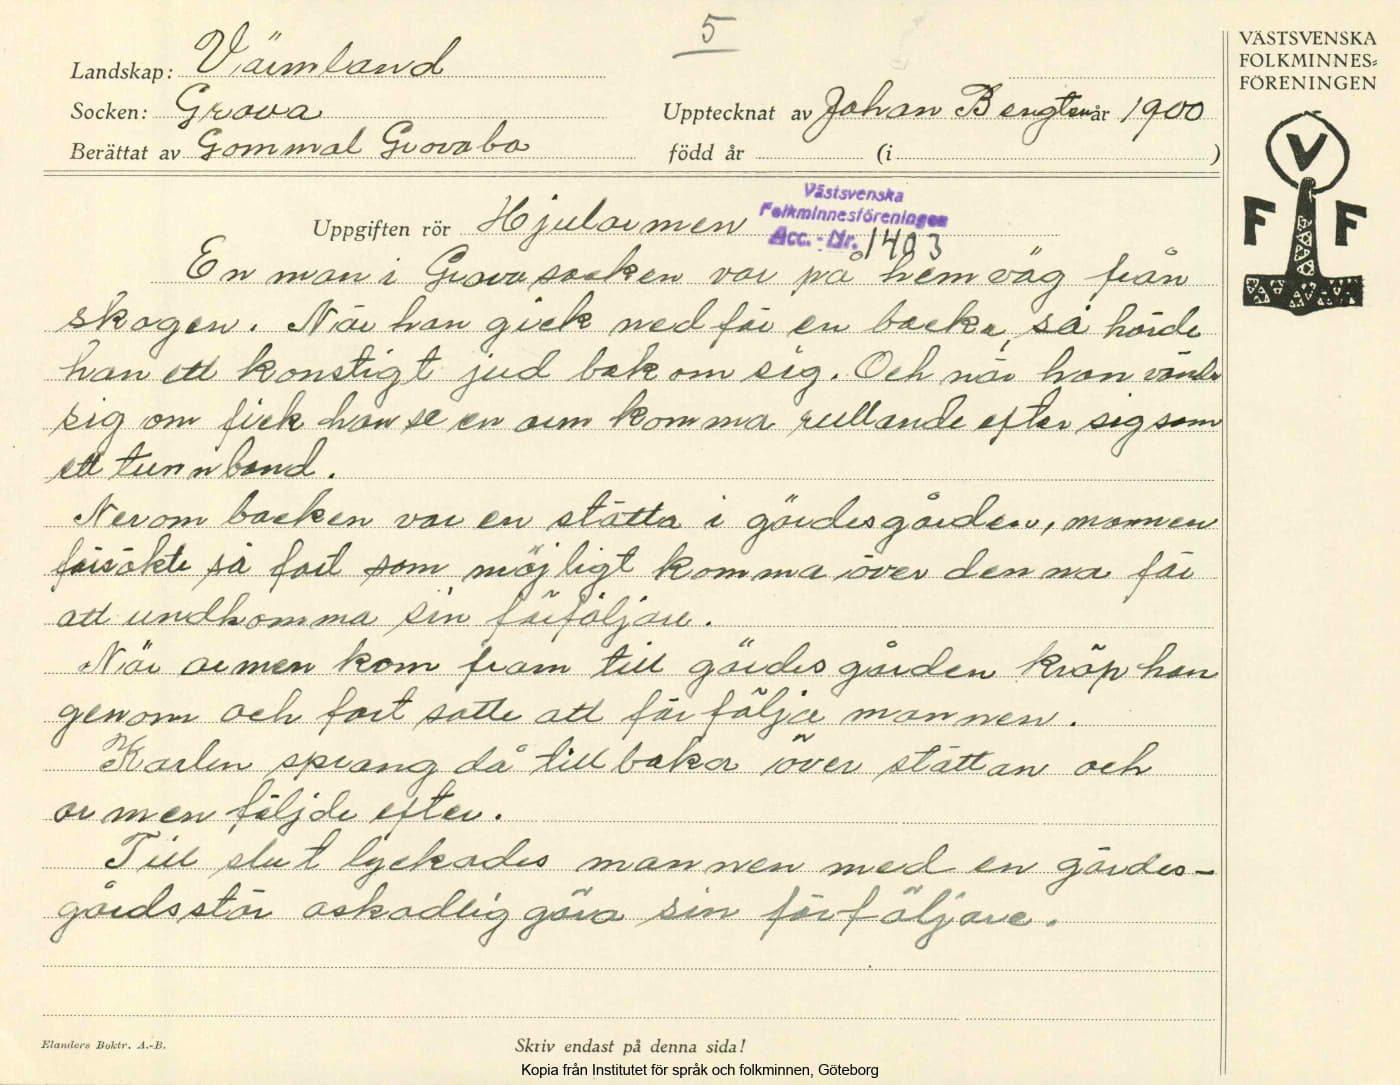 5
VÄSTSVENSKA
FOLKMINNES=
FÖRENINGEN
V
F F
Landskap: Värmland
Socken: Grava
Upptecknat av Johan Bengtson år 1900
Berättat av Gammal Gravabo
född år (i )
Västsvenska
Folkminnesföreningen
Acc. - Nr. 1403
Uppgiften rör Hjularmen
En man i Grava socken var på hemväg från
skogen. När han gick ned för en backe, så hörde
han ett konstigt jud bakom sig. Och när han vände
sig om fick han se en arm komma rullande efter sig som
ett tunnband.
Nerom backen var en stätta i gärdesgården, mannen
försökte så fort som möjligt komma över denna för
att undkomma sin förföljare.
När armen kom fram till gärdesgården kröp han
genom och fortsatte att förfölja mannen.
Karlen sprang då tillbaka över stättan och
armen följde efter.
Till slut lyckades mannen med en gärdes-
gårdsstör oskadliggöra sin förföljare.
Elanders Boktr. A.-B.
Skriv endast på denna sida!
Kopia från Institutet för språk och folkminnen, Göteborg